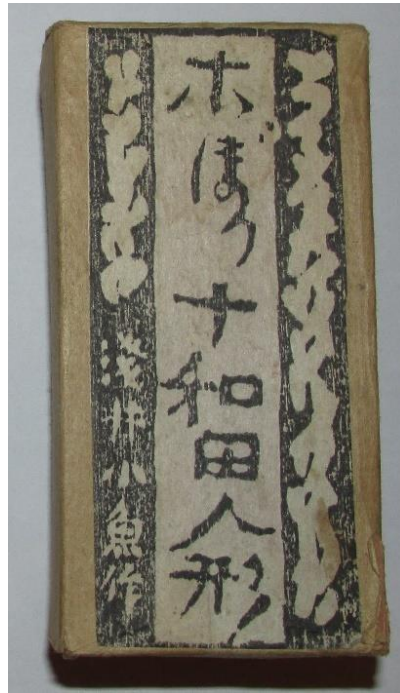 木ぼり 十和田人形
淺井小魚作